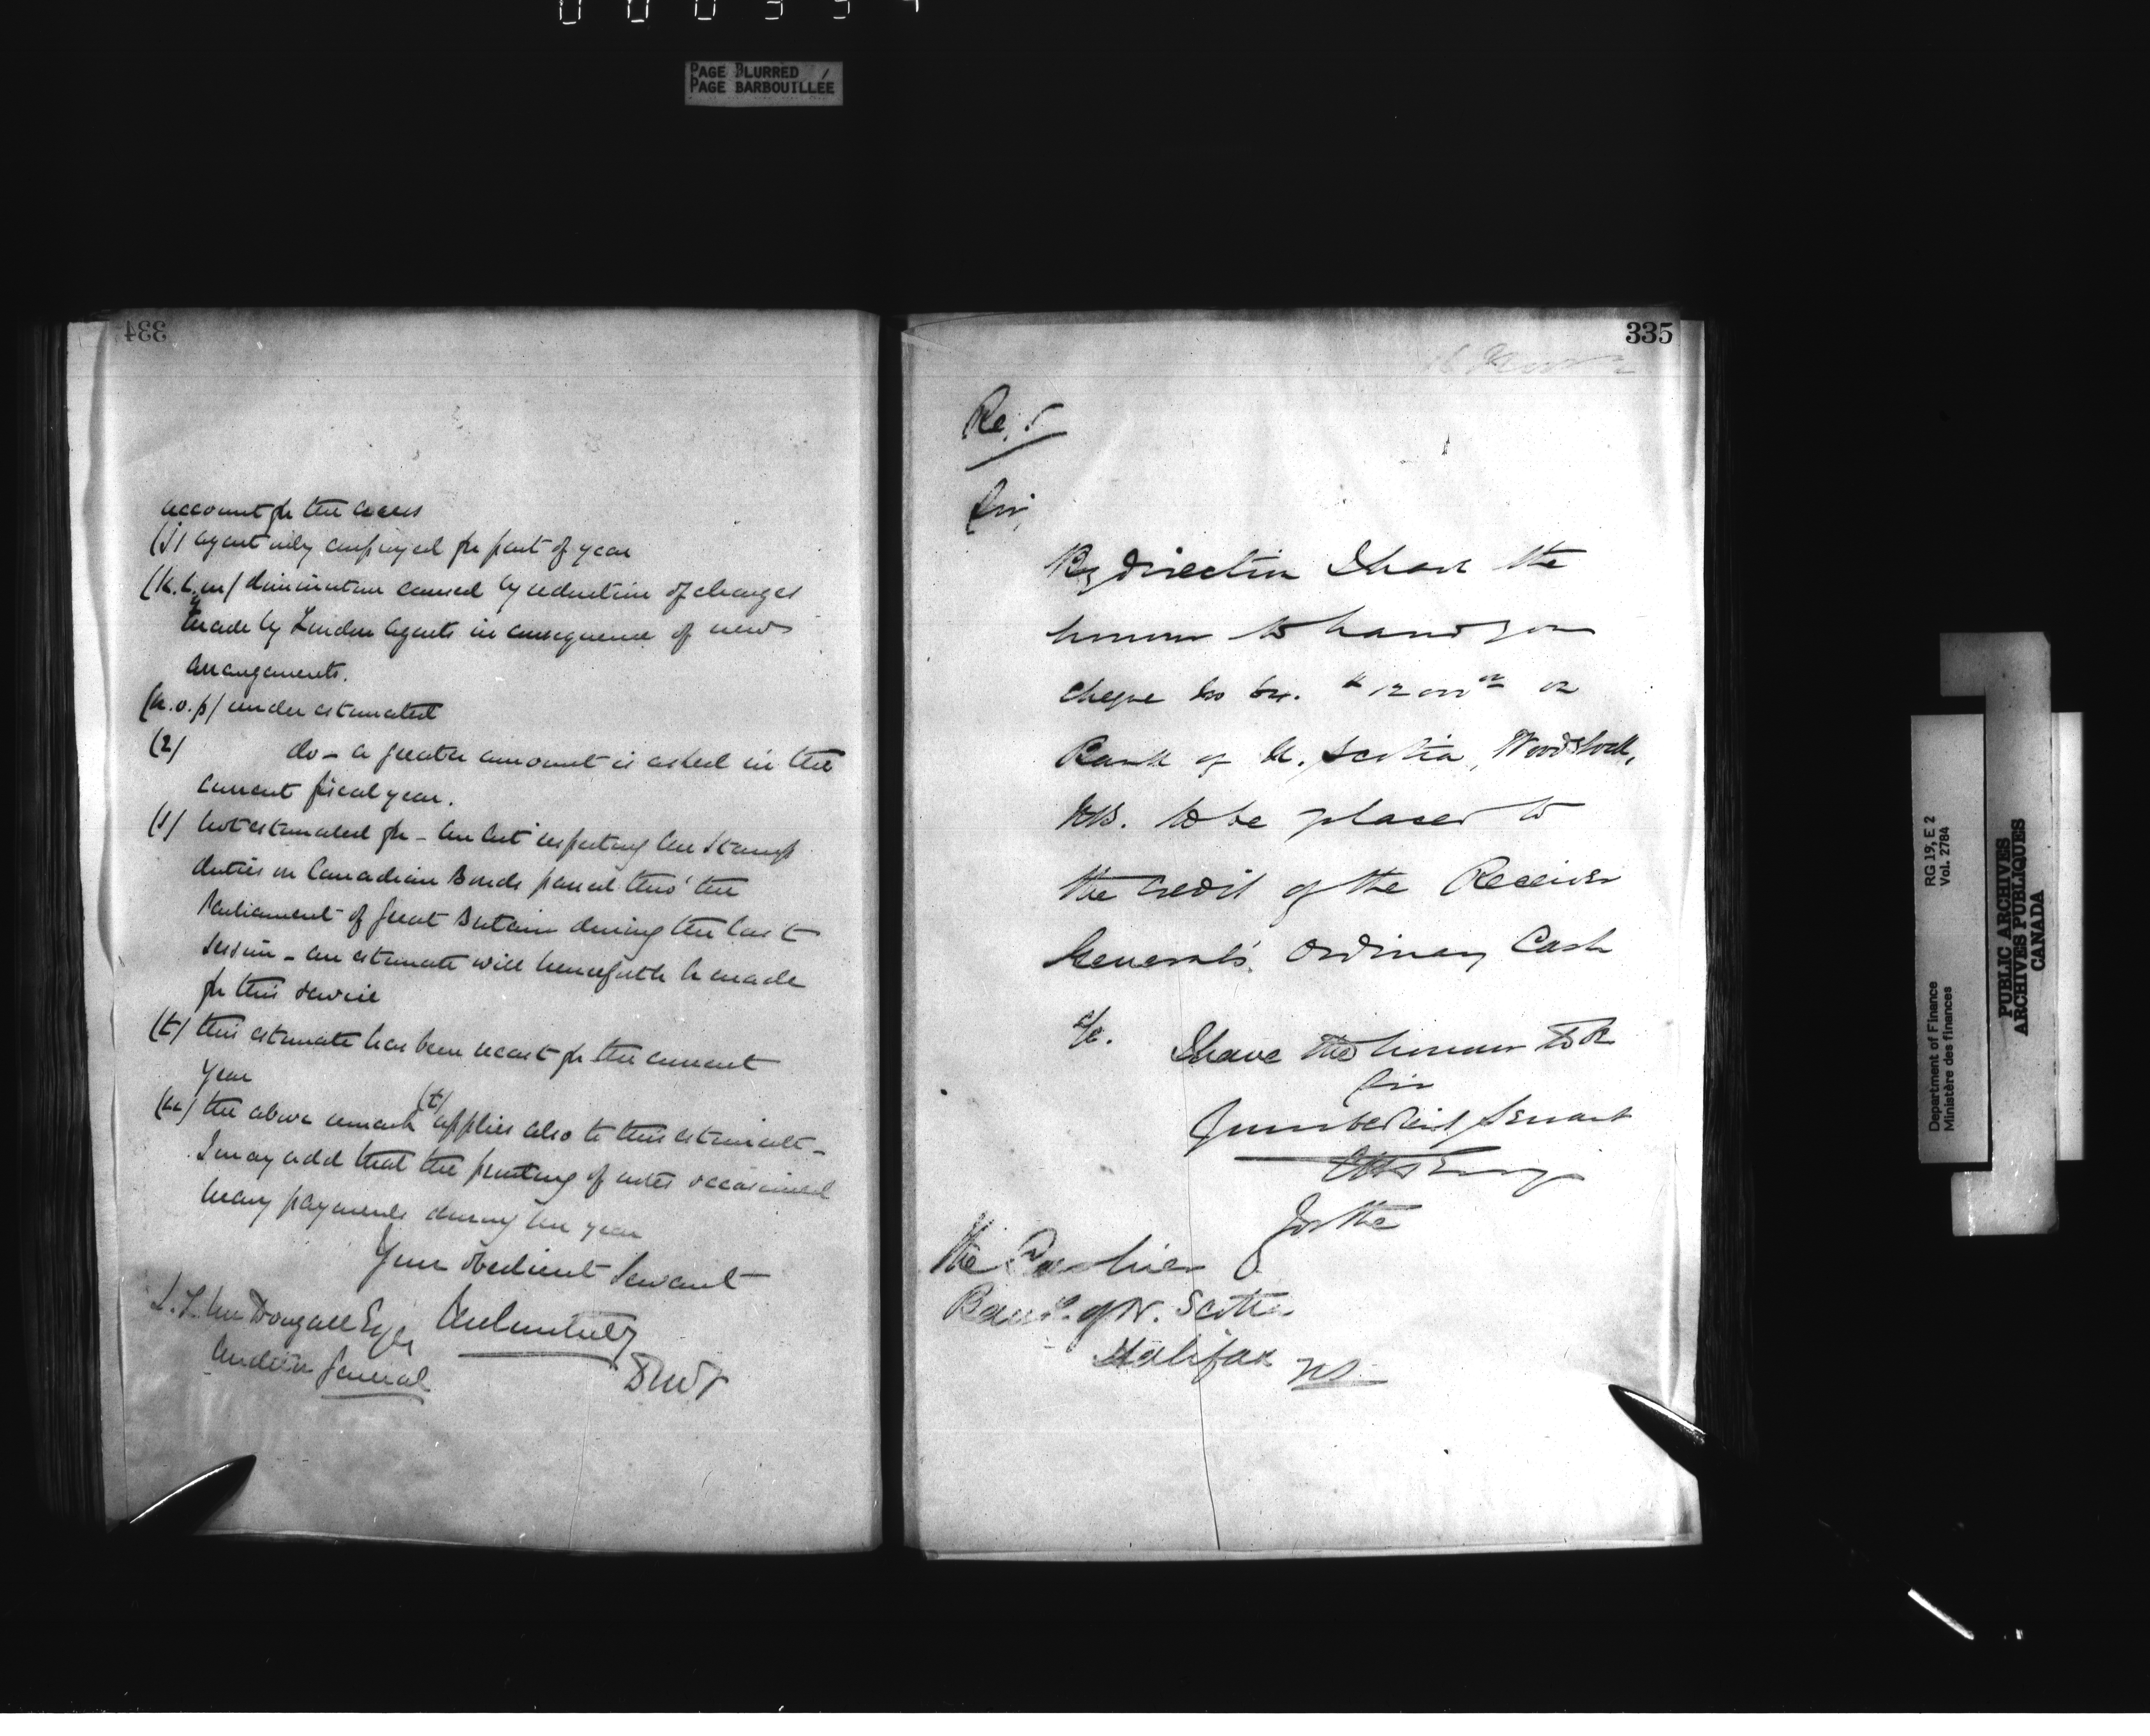 PAGE BLURRED
PAGE BARBOUILLÉE
334
account for the excess
(j) agent only employed for part of year
(k.l.m) diminution caused by reduction of charges
made by London Agents in consequence of new
arrangements.
(n.o.p) under estimated
(2) do - a greater amount is asked in the
current fiscal year.
(s) not estimated for - an Act respecting the Stamp
duties on Canadian Bonds passed thro' the
Parliament of Great Britain during the last
session - an estimate will henceforth be made
for this service
(t) this estimate has been recast for the current
year
(u) the above remark (t) applies also to this estimate -
I may add that the printing of notes occasioned
many payments during the year
Your obedient Servant
J. L. McDougall Esqre
Auditor General
335
Sir,
By direction I have the
honour to hand you
cheque on
Bank of N. Scotia, Woodstock,
NB. to be placed to
the credit of the Receiver
General's Ordinary Cash
a/c. I have the honour to be
Sir
Your obedient Servant
for the
The Cashier
Bank of N. Scotia
Halifax NS.
RG 19, E 2
Vol. 2784
Department of Finance
Ministère des finances
PUBLIC ARCHIVES
ARCHIVES PUBLIQUES
CANADA